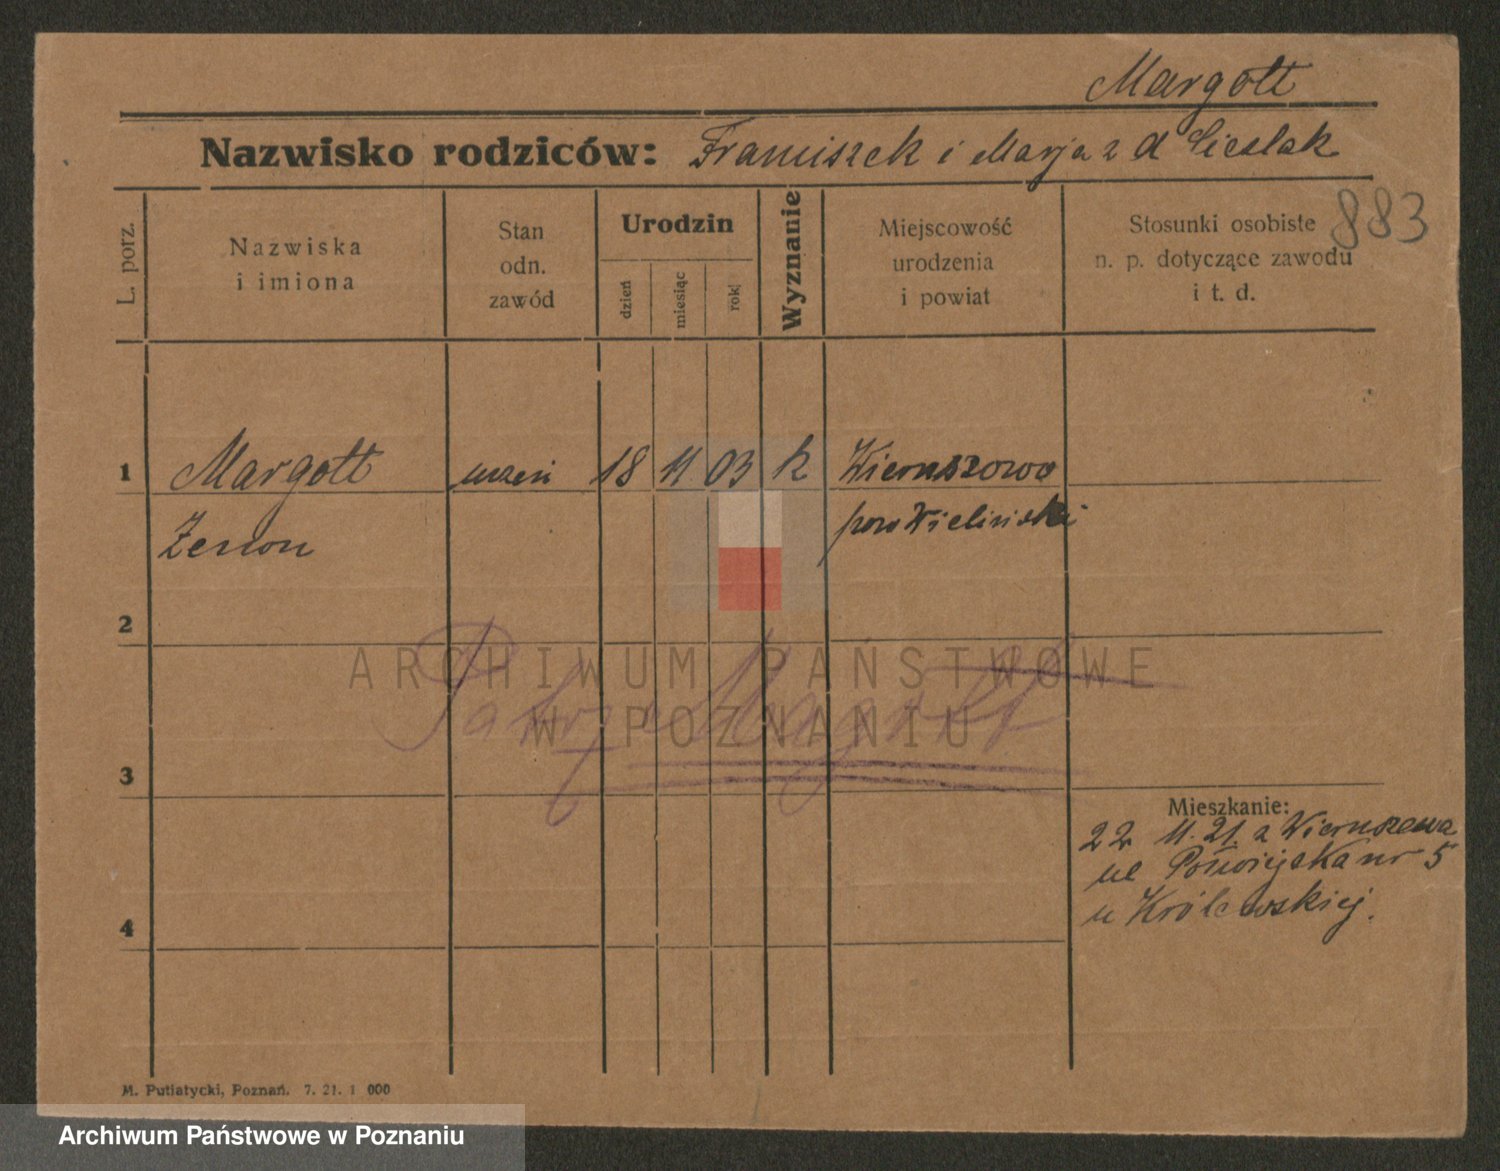 Margott
Nazwisko rodziców: Franciszek i Marja z d Cieslak
883
L. porz.
Nazwiska
i imiona
Stan
odn.
zawód
Urodzin
dzień
miesiąc
rok
Wyznanie
Miejscowość
urodzenia
i powiat
Stosunki osobiste
n. p. dotyczące zawodu
i t. d.
1 Margott uczeń 18 11 03 k Wieruszowo
Zenon pow Wieliński
2
ARCHIWUM PAŃSTWOWE
W POZNANIU
Patrz Margott
3
Mieszkanie:
22 11. 21. z Wieruszewa
ul nr 5
u Królewskiej.
4
M. Putiatycki, Poznań. 7. 21. 1 000
Archiwum Państwowe w Poznaniu